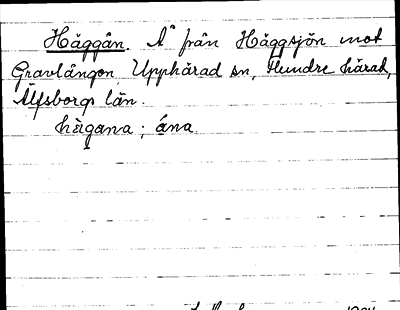 Häggån. Å från Häggsjön mot
Gravlången, Upphärad sn, Flundre härad,
Älfsborgs län.
hägana; åna